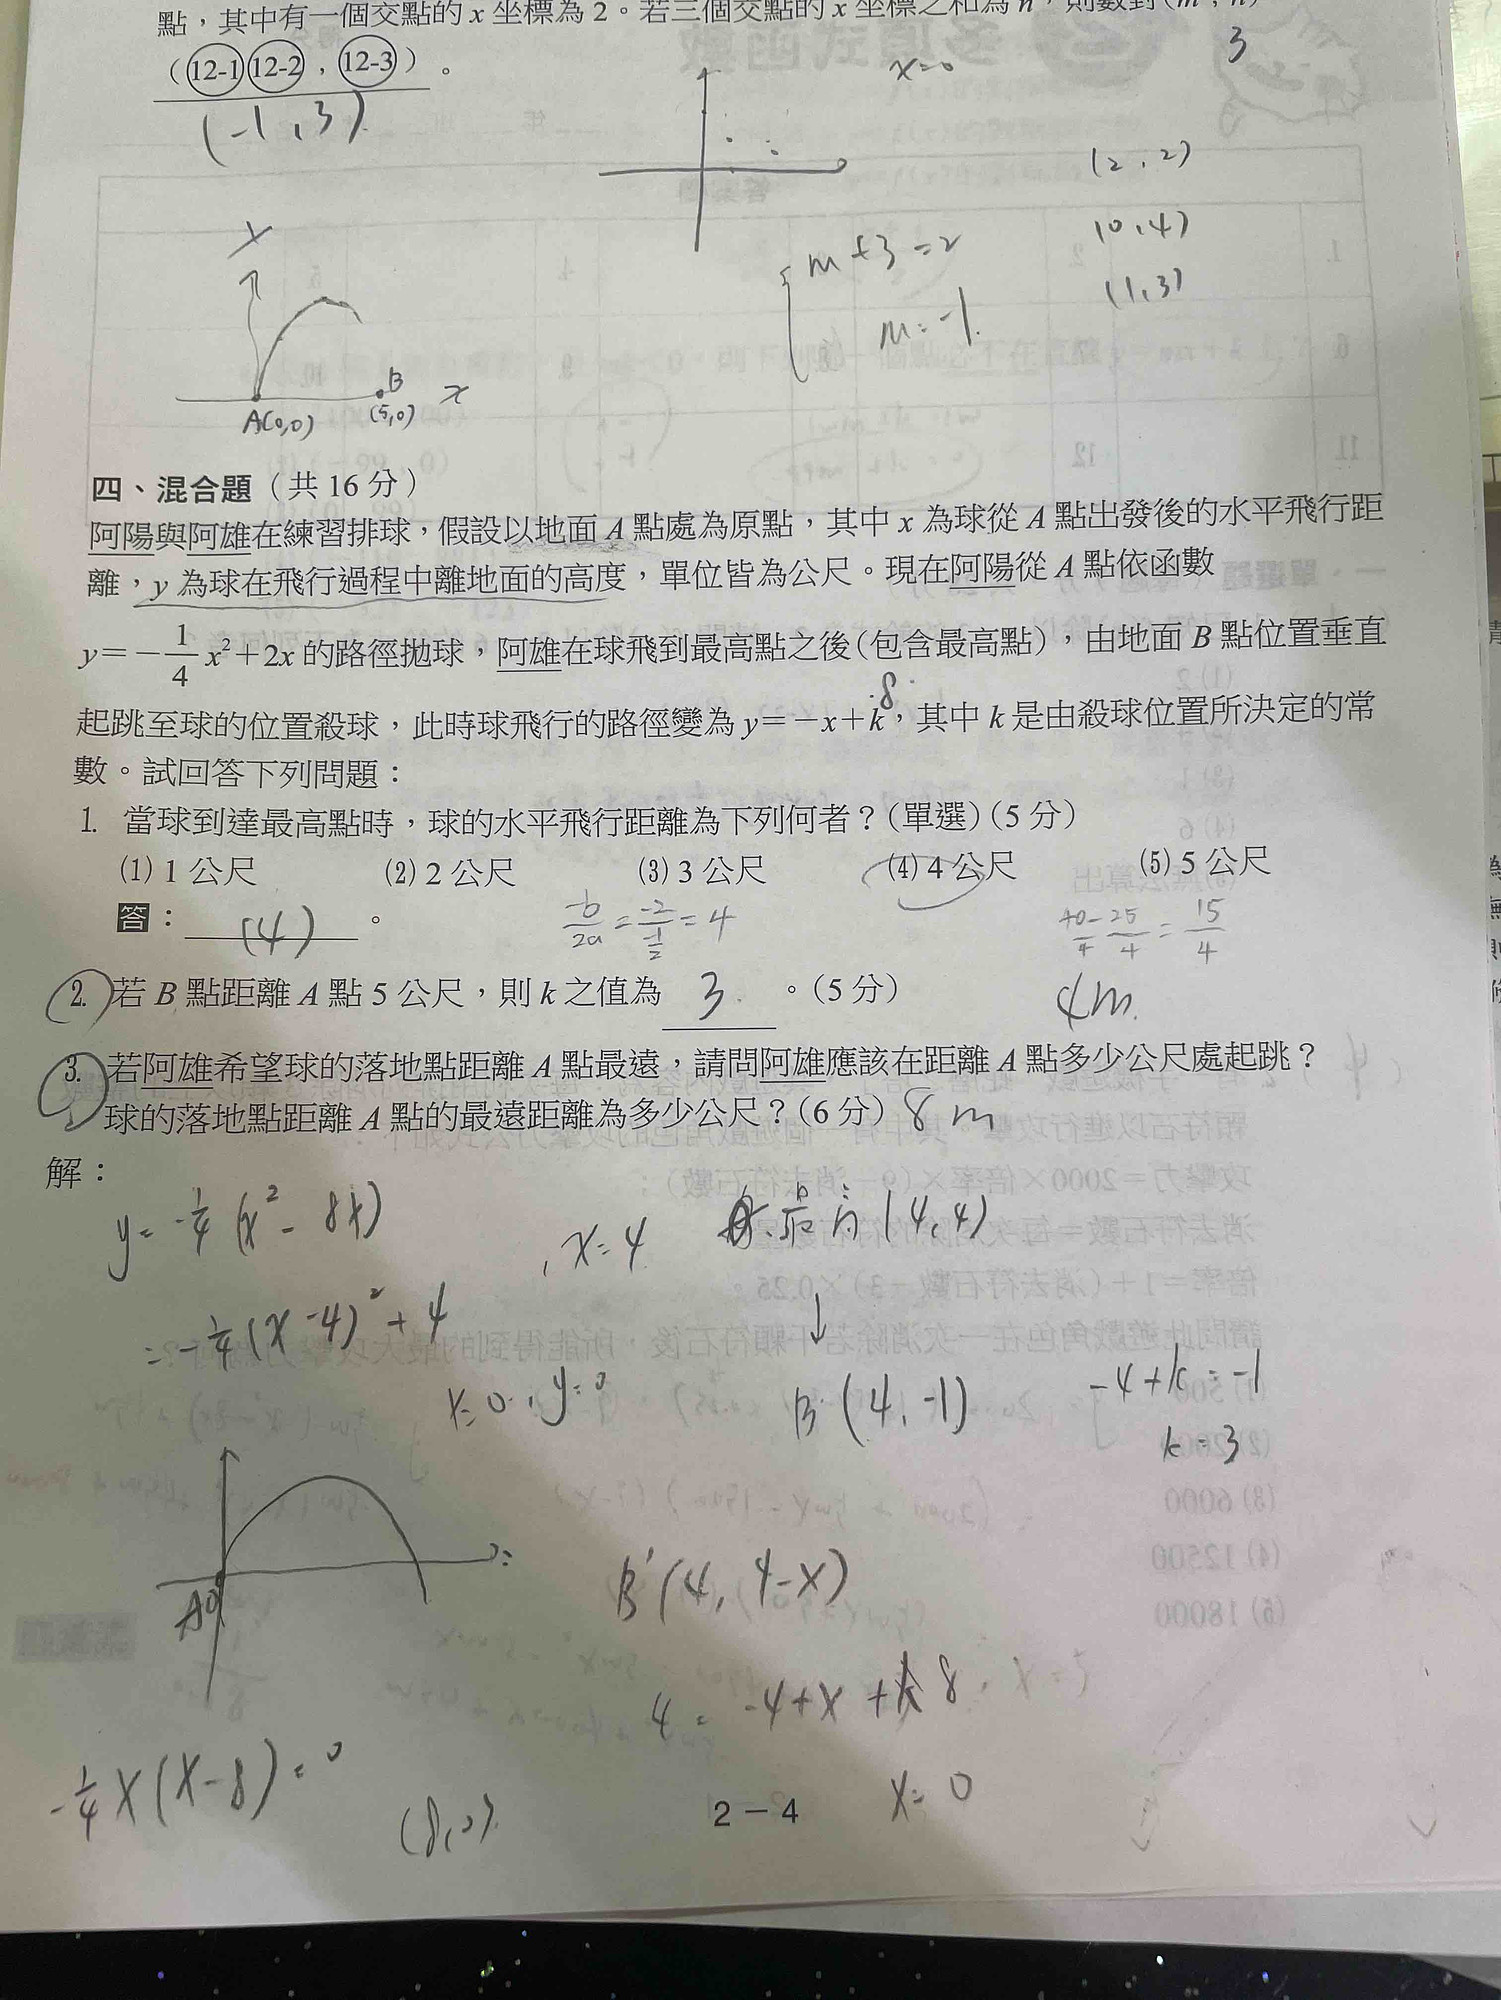 點，其中有一個交點的 x 坐標為 2。若三個交點的 x 坐標之和為 n，則數對 (m, n)
3
（(12-1)(12-2)，(12-3)）。
x=0
(-1,3)
(2,2)
(0,4)
(1,3)
m+3=2
m=-1
y
A(0,0)
B
(5,0)
x
四、混合題（共 16 分）
阿陽與阿雄在練習排球，假設以地面 A 點處為原點，其中 x 為球從 A 點出發後的水平飛行距
離，y 為球在飛行過程中離地面的高度，單位皆為公尺。現在阿陽從 A 點依函數
y=-1/4 x²+2x 的路徑拋球，阿雄在球飛到最高點之後(包含最高點)，由地面 B 點位置垂直
8
起跳至球的位置殺球，此時球飛行的路徑變為 y=-x+k，其中 k 是由殺球位置所決定的常
數。試回答下列問題：
1. 當球到達最高點時，球的水平飛行距離為下列何者？(單選)(5 分)
(1) 1 公尺 (2) 2 公尺 (3) 3 公尺 (4) 4 公尺 (5) 5 公尺
答： (4) 。
-b/2a = -2/-1/2 = 4
40/4 - 25/4 = 15/4
2. 若 B 點距離 A 點 5 公尺，則 k 之值為 3 。(5 分)
4m
3. 若阿雄希望球的落地點距離 A 點最遠，請問阿雄應該在距離 A 點多少公尺處起跳？
球的落地點距離 A 點的最遠距離為多少公尺？(6 分) 8m
解：
y=-1/4(x²-8x)
, x=4
最高(4,4)
=-1/4(x-4)²+4
↓
x=0, y=0
B(4,-1)
-4+k=-1
k=3
A
B'(4,4-x)
4=-4+x+k 8
-1/4x(x-8)=0
(8,0)
x=0
2－4